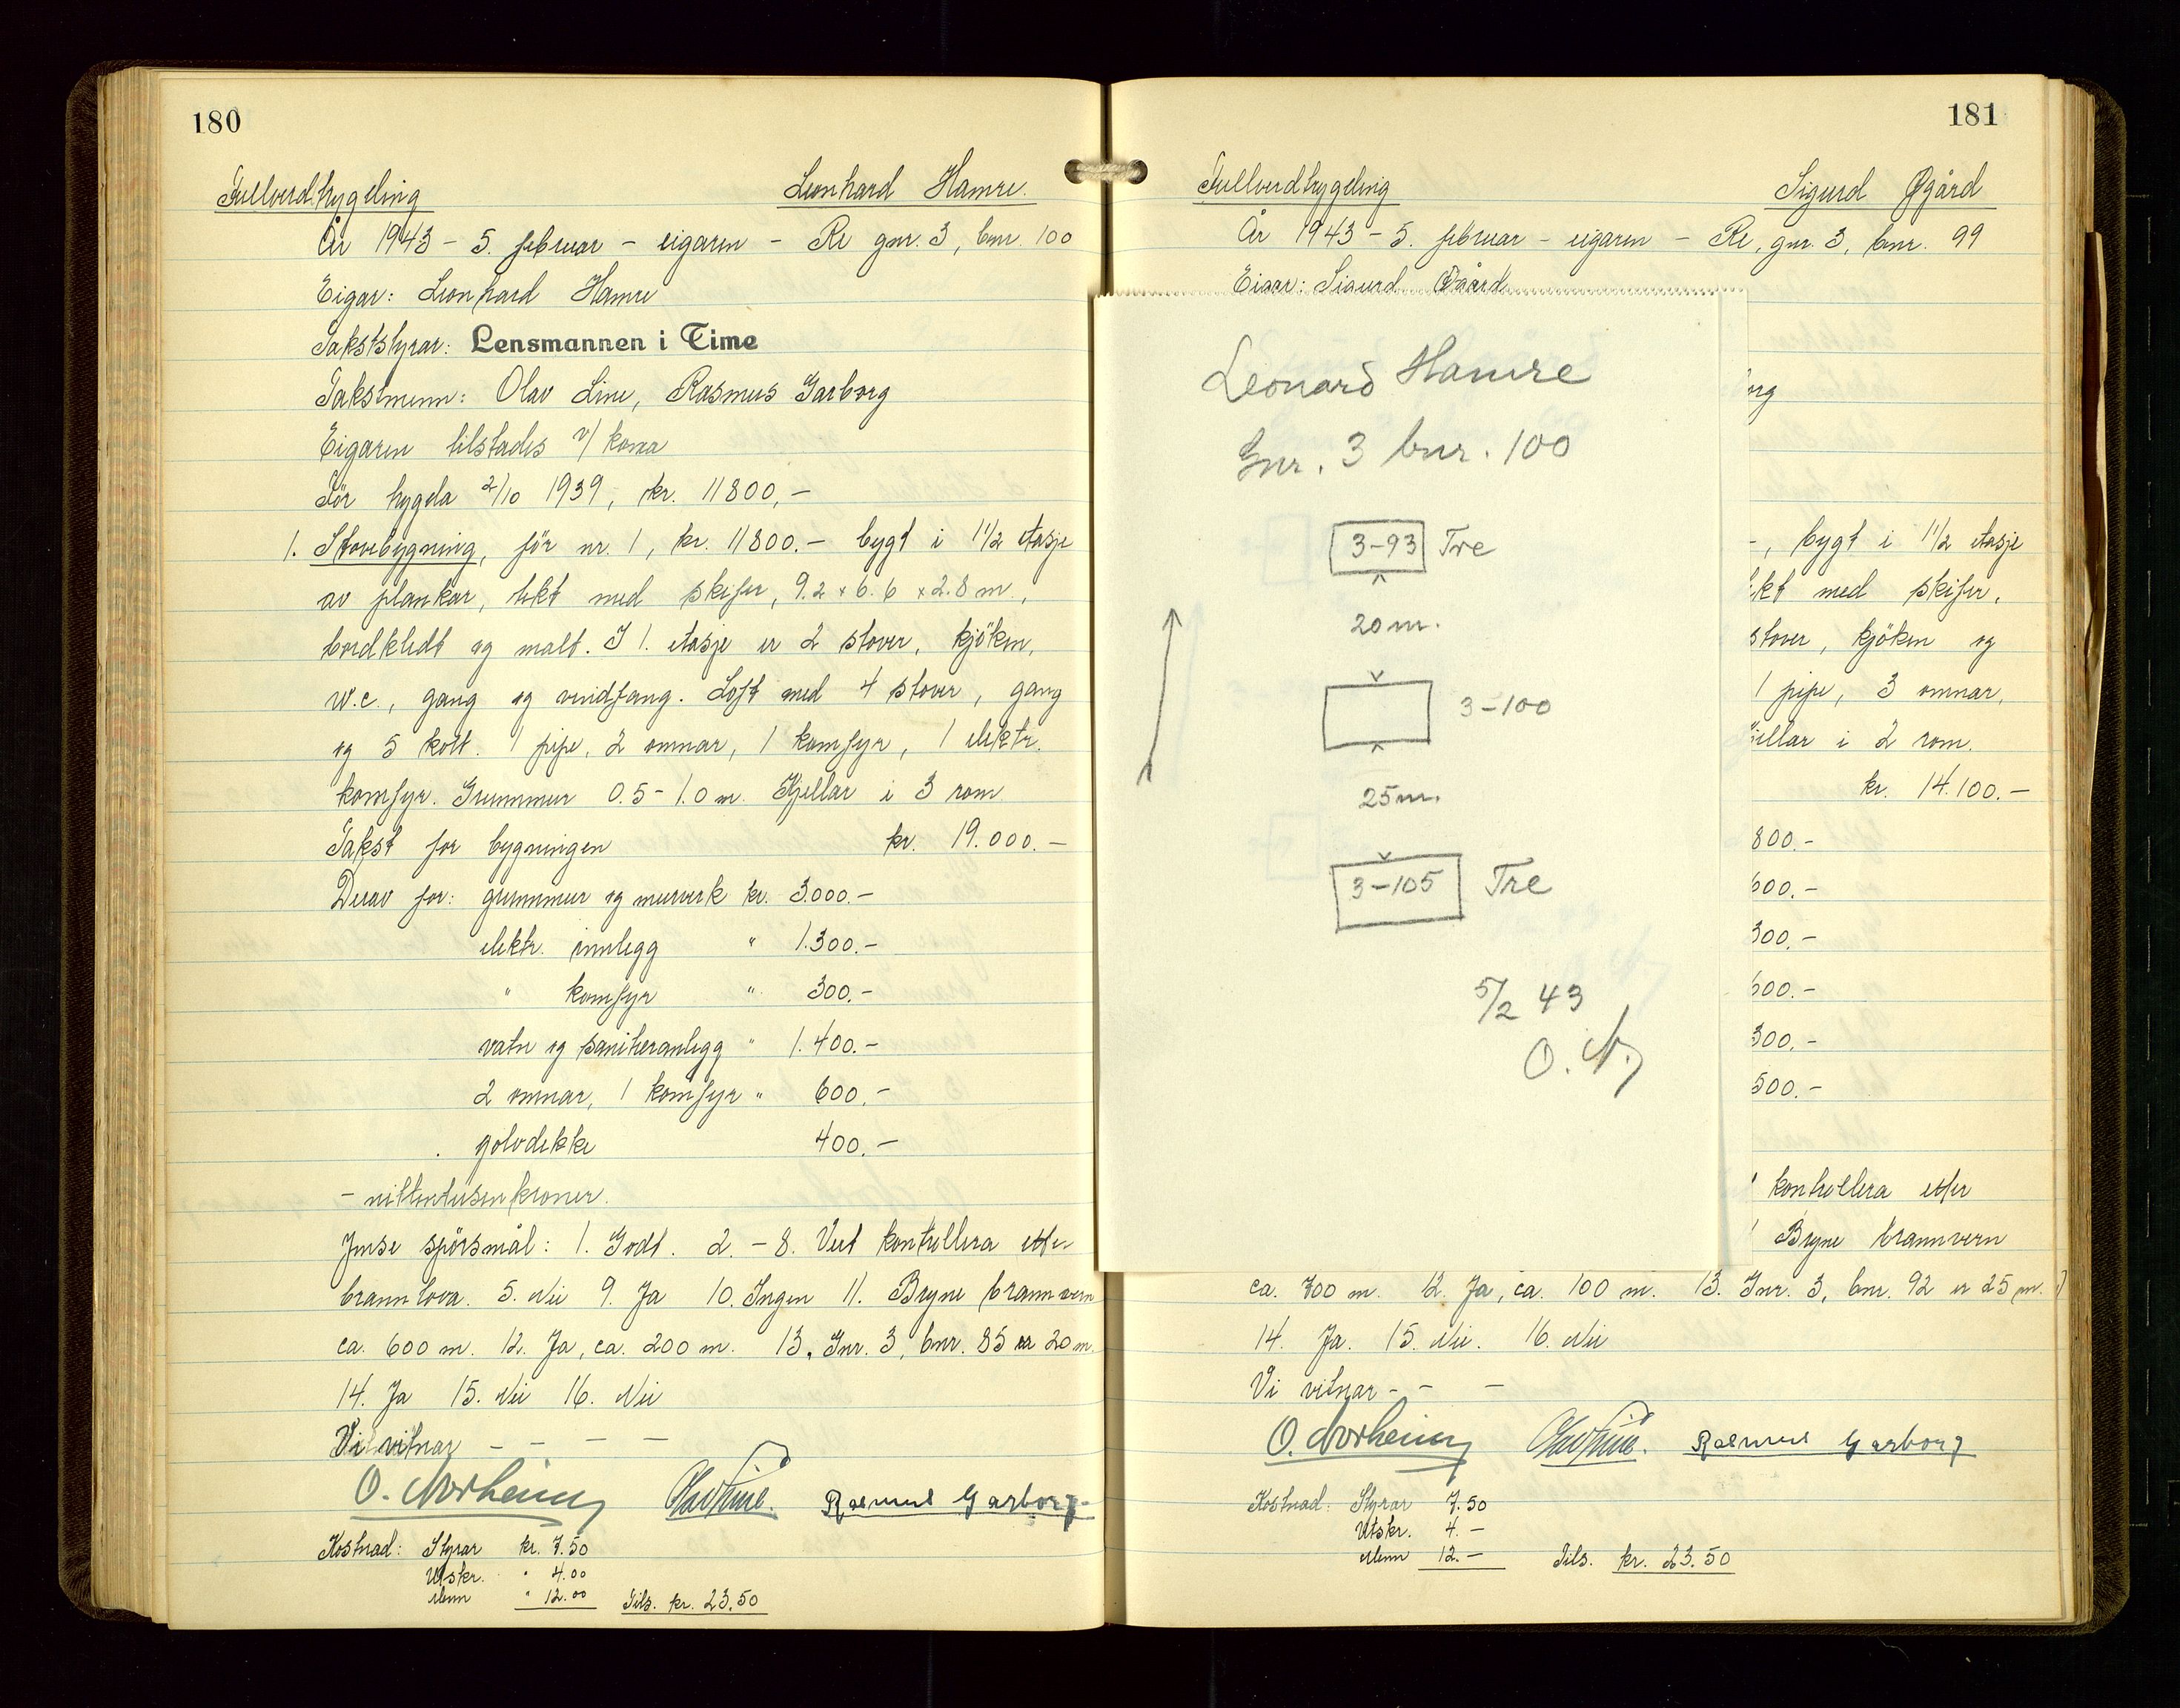 180
Fullverdhygding Leonhard Hamre.
År 1943 - 5. februar - eigaren - Re gnr. 3, bnr. 100
Eigar: Leonhard Hamre
Takststyrar: Lensmannen i Time
Takstmenn: Olav Line, Rasmus Garborg
Eigaren tilstades v/ kona
Før hygda 2/10 1939, kr. 11800,-
1. Stovebygning, før nr. 1, kr. 11800.- bygt i 1 1/2 etasje
av plankar, tekt med skifer, 9.2 x 6.6 x 2.8 m.,
bordkledt og malt. I 1. etasje er 2 stover, kjöken,
w.c., gang og vindfang. Loft med 4 stover, gang
og 5 kott. 1 pipe, 2 omnar, 1 komfyr, 1 elektr.
komfyr. Grunnmur 0.5 - 1.0 m. Kjellar i 3 rom
Takst for bygningen kr. 19.000.-
Derav for: grunnmur og murverk kr. 3.000.-
elektr. innlegg " 1.300.-
" komfyr " 300.-
vatn og saniteranlegg " 1.400.-
2 omnar, 1 komfyr " 600.-
golvdekke 400.-
- nittentusen kroner.
Ymse spörsmål: 1. Godt. 2. - 8. Vert kontrollera etter
brannlova. 5. Nei 9. Ja 10. Ingen 11. Bryne brannvern
ca. 600 m. 12. Ja, ca. 200 m. 13. Gnr. 3, bnr. 85 er 20 m.
14. Ja 15. Nei 16. Nei
Vi vitnar - - - -
O. Norheim Olav Line. Rasmus Garborg
Kostnad: Styrar kr. 7.50
Utskr. " 4.00
Menn " 12.00 Tils. kr. 23.50
181
Fullverdhygding Sigurd Øgård
År 1943 - 5. februar - eigaren - Re, gnr. 3, bnr. 99
Eigar: Sigurd Øgård
Leonard Hamre
Gnr. 3 bnr. 100
3-93 Tre
20 m.
3-100
25 m.
3-105 Tre
5/2 43
O. N.
org
-, bygt i 1 1/2 etasje
ekt med skifer.
stover, kjöken og
1 pipe, 3 omnar,
jellar i 2 rom.
kr. 14.100.-
800.-
600.-
300.-
600.-
300.-
500.-
kontrollera etter
Bryne brannvern
ca. 700 m. 12. Ja, ca. 100 m. 13. Gnr. 3, bnr. 92 er 25 m.
14. Ja. 15. Nei. 16. Nei
Vi vitnar - - -
O. Norheim Olav Line. Rasmus Garborg
Kostnad: Styrar 7.50
Utskr. 4.-
Menn 12.- Tils. kr. 23.50